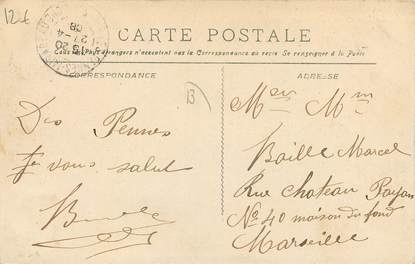 12€
CARTE POSTALE
Tous les Pays étrangers n'acceptent pas la Correspondance au recto. Se renseigner à la Poste
CORRESPONDANCE
ADRESSE
13
Des Pennes
Je vous salut
Meur Mm
Baille Marcel
Rue Chateau Payan
No 40 maison du fond
Marseille
15 20
27 -4
08